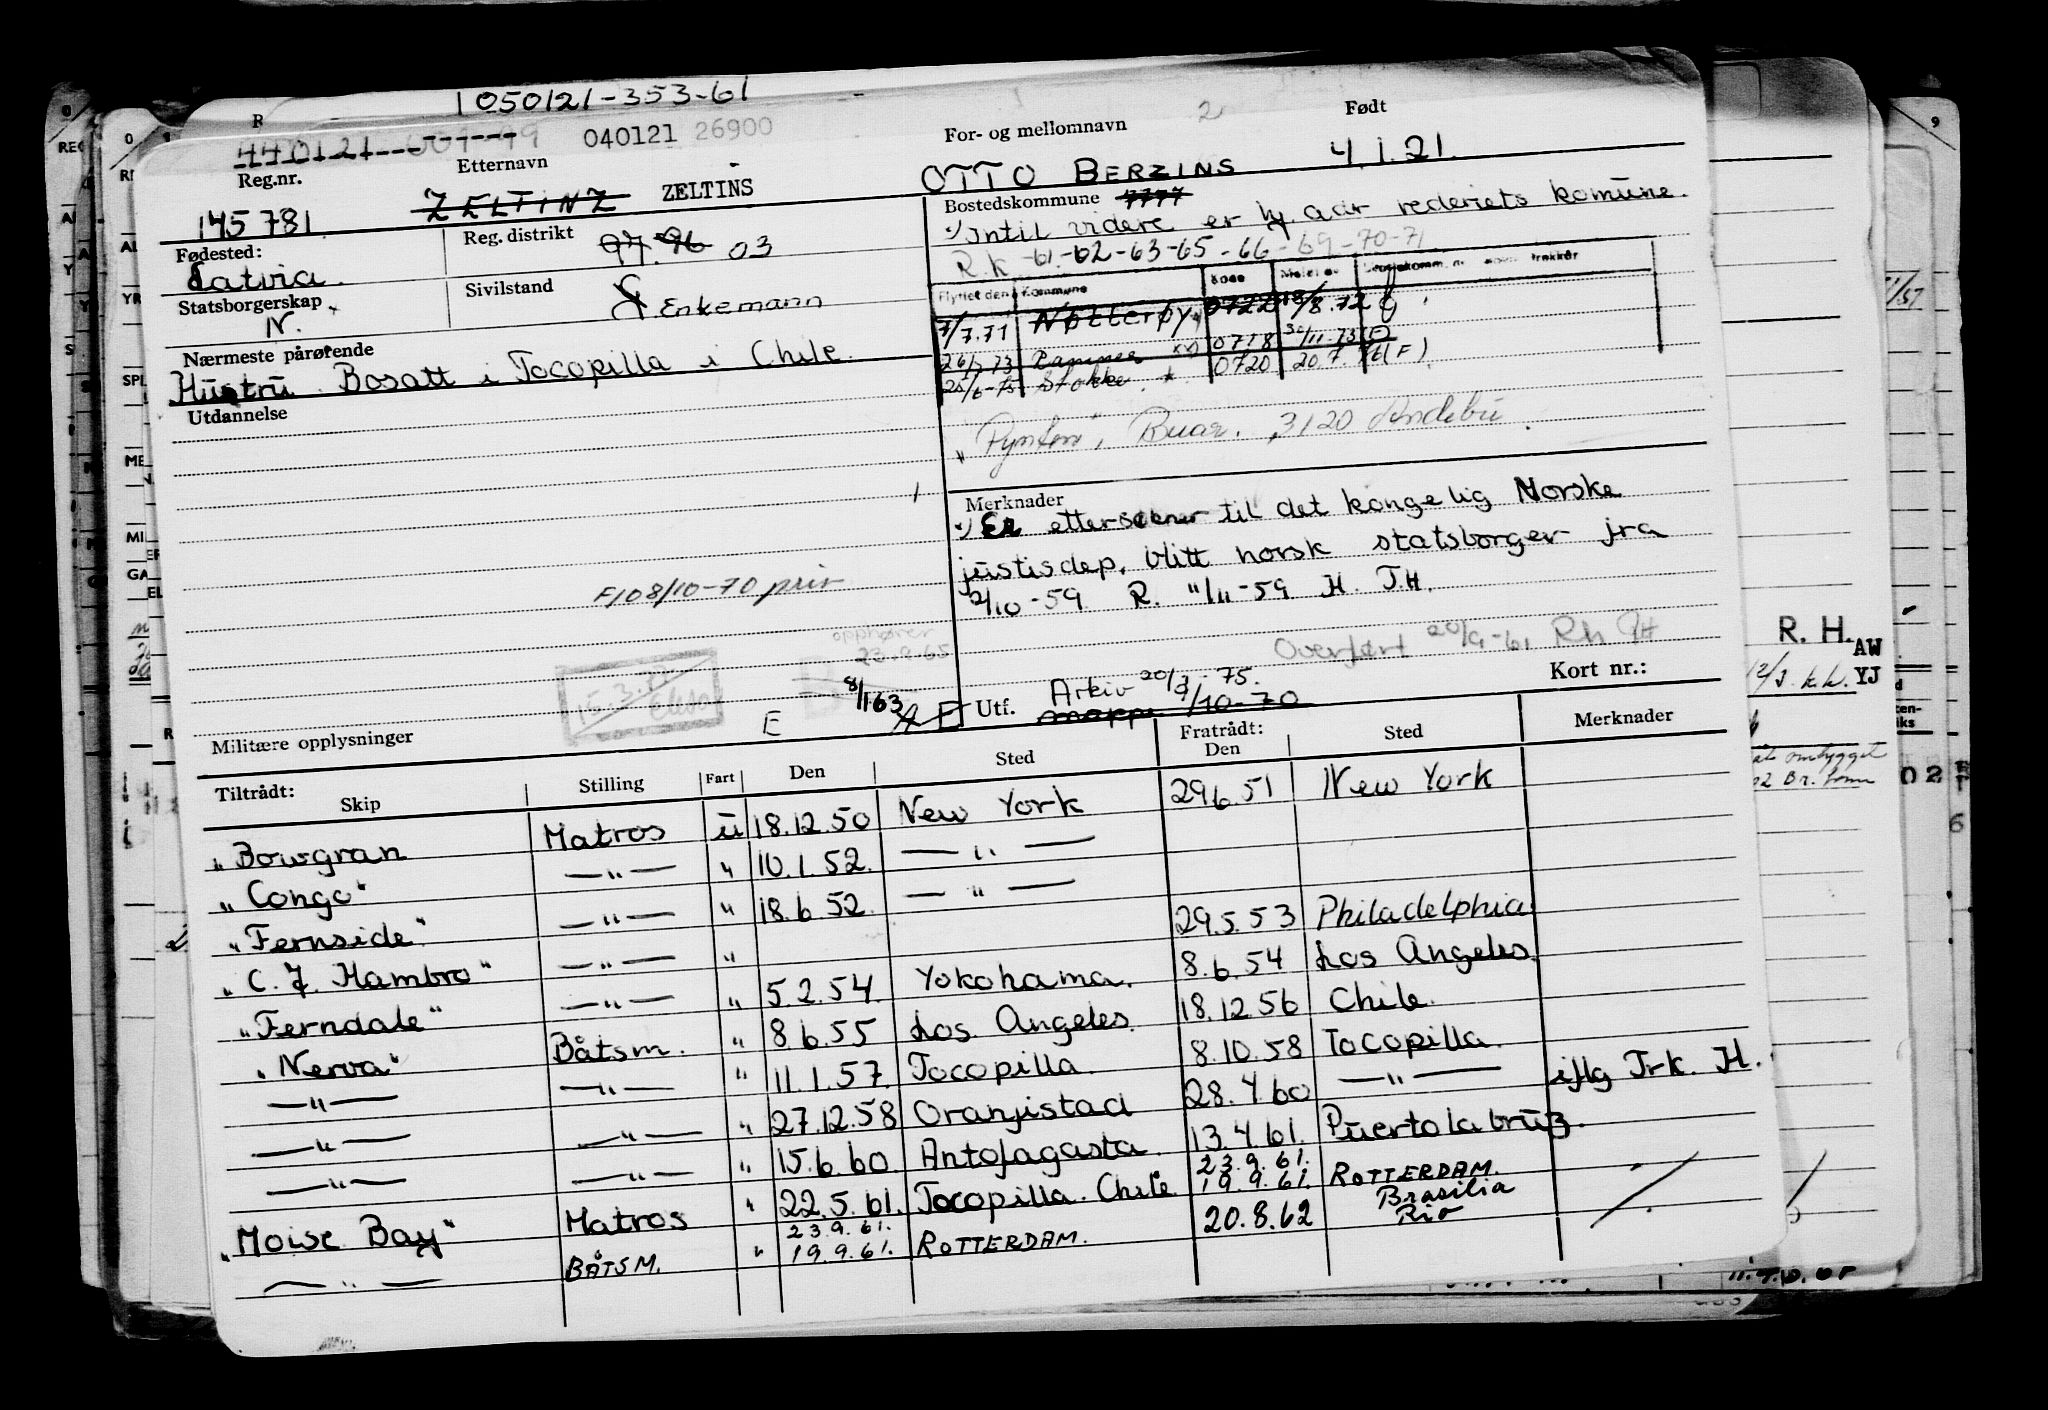 1 050121-353-61
040121 26900
R
Reg.nr. Etternavn For- og mellomnavn 2 Født
145781 ZELTINZ ZELTINS OTTO BERZINS 4.1.21.
Fødested: Reg. distrikt 97.96 03 Bostedskommune 7777
Latvia. x) Intil videre er hj. adr rederiets komune.
R.k -61-62-63-65-66-69-70-71
Statsborgerskap Sivilstand G Enkemann
N.
Flyttet den Kommune Kode
7/7.71 Nøtterøy 0722 18/8.72
Ramnes 0718 30/11.73
25/6-75 Stokke * 0720 20.7. (F)
Nærmeste pårørende
Hustru. Bosatt i Tocopilla i Chile.
Utdannelse
Buar. 3120 Andebu.
Merknader
x) Er ettersender til det kongelig Norske
justisdep. blitt norsk statsborger fra
2/10-59 R. 11/11-59 H. T.H.
F108/10-70 priv
opphører
23.9.65
Overført 20/9-61 Rh
8/1.63
E
Utf. Arkiv 20/3 75.
mappe 9/10-70
Kort nr.:
Militære opplysninger
Tiltrådt: Skip Stilling Fart Den Sted Fratrådt: Den Sted Merknader
"Bowgran Matros u 18.12.50 New York 29.6.51 New York
"Congo" —"— " 10.1.52. —"—
"Fernside" —"— " 18.6.52. —"—
"C.J. Hambro" —"— " 29.5.53 Philadelphia.
"Ferndale" —"— " 5.2.54. Yokohama. 8.6.54 Los Angeles.
"Nerva" Båtsm. " 8.6.55 Los Angeles. 18.12.56 Chile.
—"— —"— " 11.1.57. Tocopilla. 8.10.58 Tocopilla.
—"— —"— " 27.12.58 Oranjistad 28.4.60 —"— iflg Trk. H.
—"— —"— " 15.6.60 Antofagasta. 13.4.61. Puerto la bruz.
"Moise Bay" Matros " 22.5.61. Tocopilla. Chile 23.9.61. 19.9.61. ROTTERDAM.
—"— BÅTSM. " 23.9.61. 19.9.61. ROTTERDAM. 20.8.62 Brasilia Rio
R. H. AW
YJ